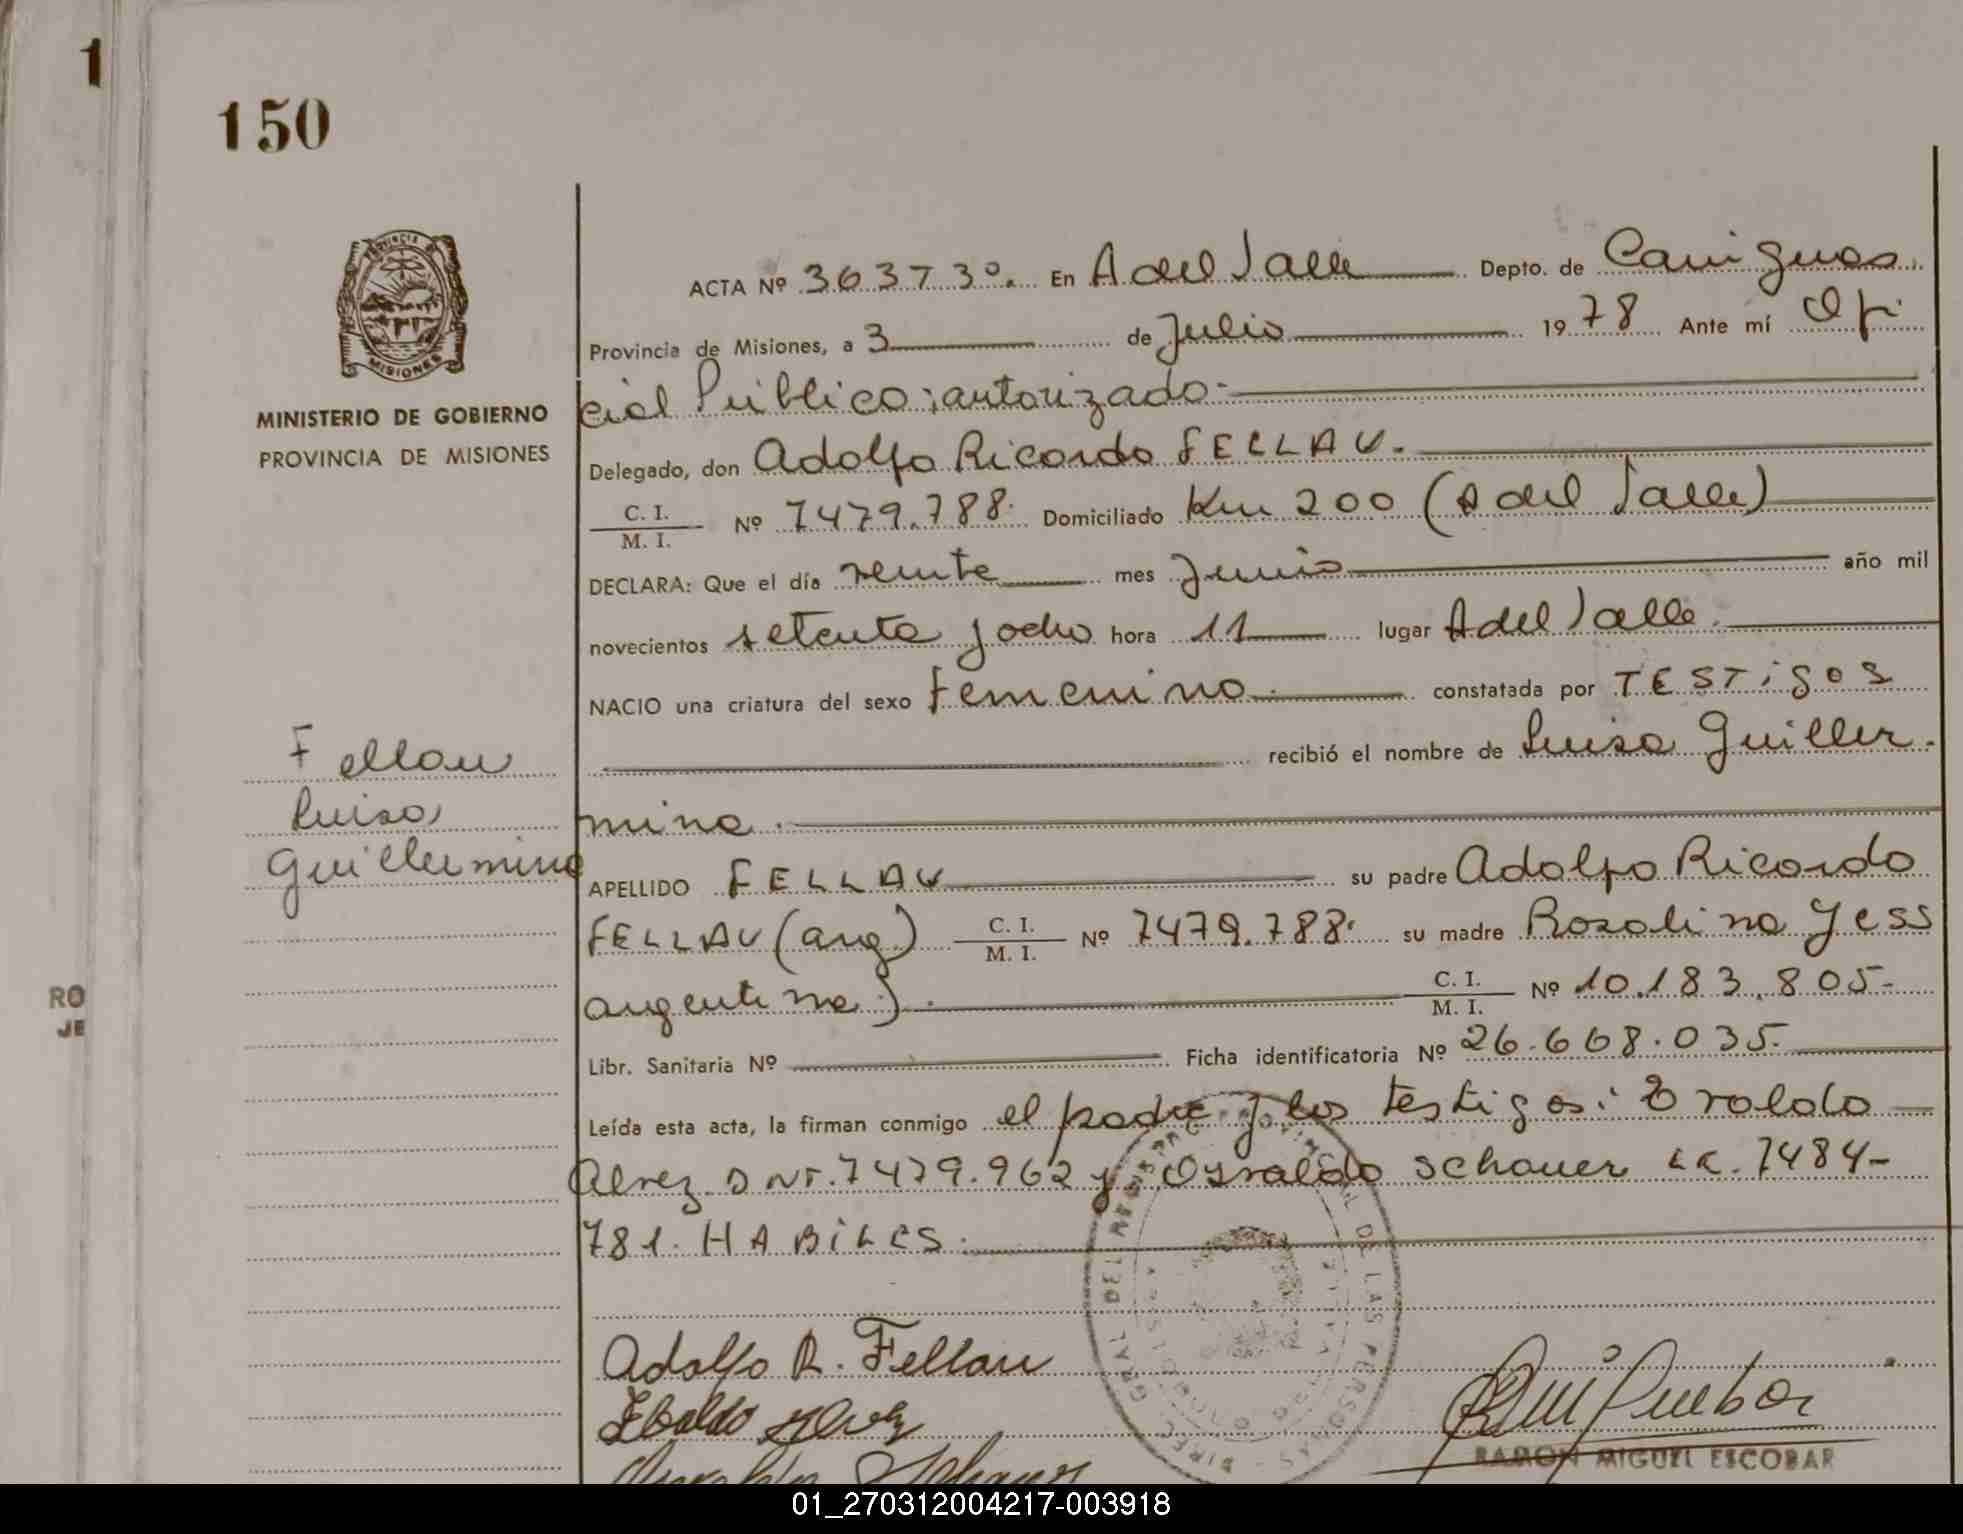 1
150
PROVINCIA DE
MISIONES
MINISTERIO DE GOBIERNO
PROVINCIA DE MISIONES
ACTA Nº 36373º. En A del Valle Depto. de Cainguas
Provincia de Misiones, a 3 de Julio 1978 Ante mí Ofi
cial Público; autorizado.
Delegado, don Adolfo Ricardo FELLAU.
C. I.
M. I. Nº 7479.788. Domiciliado Km 200 (A del Valle)
DECLARA: Que el día veinte mes Junio año mil
novecientos setenta y ocho hora 11 lugar A del Valle.
NACIO una criatura del sexo femenino. constatada por TESTigos
recibió el nombre de Luisa Guiller-
mina.
Fellau
Luisa
Guillermina
APELLIDO FELLAU su padre Adolfo Ricardo
FELLAU (arg) C. I.
M. I. Nº 7479.788. su madre Rosalina Yess
argentina). C. I.
M. I. Nº 10.183.805-
RO
JE
Libr. Sanitaria Nº Ficha identificatoria Nº 26.668.035.
Leída esta acta, la firman conmigo el padre y los testigos: Evaldo
Alvez DNI. 7479.962 y Osvaldo Schauer LE. 7484-
781. HABiLES.
DIREC. GRAL. DEL REGISTRO CIVIL DE LAS PERSONAS
Adolfo R. Fellau
RAMON MIGUEL ESCOBAR
01_270312004217-003918